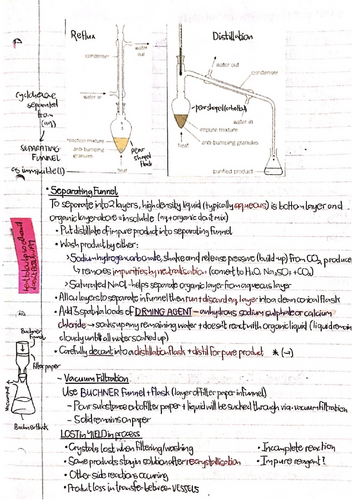 Reflux
Distillation
condenser
water out
water in
reaction mixture
anti bumping granules
heat
pear shaped flask
water out
condenser
pear shaped
water in
impure mixture
anti bumping granules
heat
purified product
cyclohexene separated from (aq)
SEPARATING FUNNEL
as immiscible (l)
• Separating Funnel
To separate into 2 layers, high density liquid (typically aqueous) is bottom layer and
organic layer above = insoluble (aq + organic don't mix)
• Put distillate of impure product into separating funnel
• Wash product by either:
> Sodium hydrogencarbonate, shake and release pressure (build up) from CO₂ produce
↳ removes impurities by neutralisation (convert to H₂O, Na₂SO₄ + CO₂)
> Saturated NaCl - helps separate organic layer from aqueous layer
• Allow layers to separate in funnel then run + discard aq layer into a clean conical flask
• Add 3 spatula loads of DRYING AGENT - anhydrous sodium sulphate or calcium
chloride → soaks up any remaining water + doesn't react with organic liquid (liquid remains
cloudy until all water soaked up)
• Carefully decant into a distillation flask + distil for pure product * (→)
- Vacuum Filtration
Use BUCHNER Funnel + flask (layer of filter paper in funnel)
- Pour substance onto filter paper + liquid will be sucked through via vacuum filtration
- Solid remains on paper
Buchner funnel
filter paper
vacuum
Buchner flask
LOST in YIELD in process
• Crystals lost when filtering/washing
• Some products stay in solution after recrystallisation
• Other side reactions occuring
• Product loss in transfer between VESSELS
• Incomplete reaction
• Impure reagent?